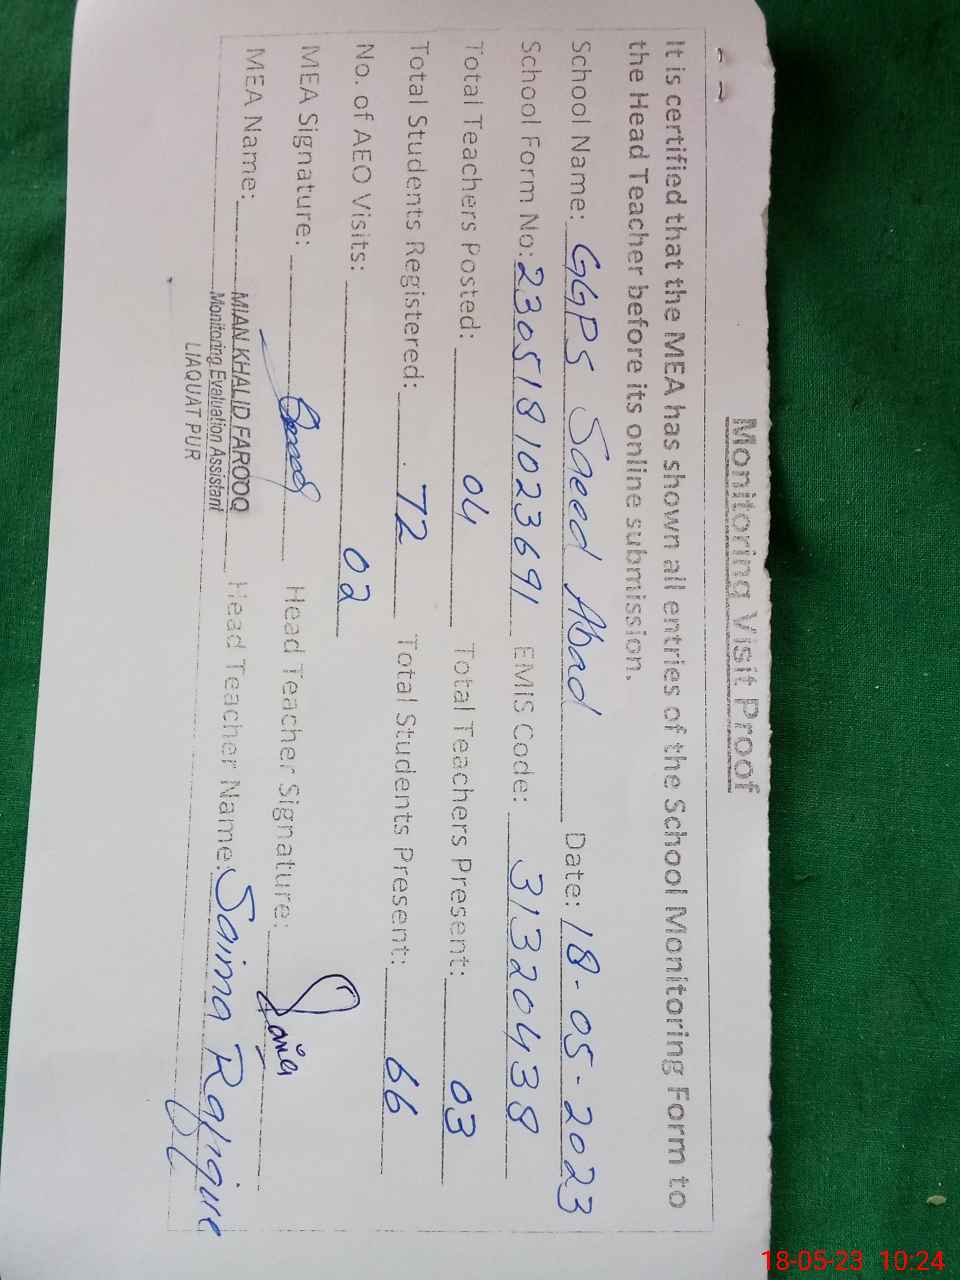 Monitoring Visit Proof
It is certified that the MEA has shown all entries of the School Monitoring Form to
the Head Teacher before its online submission.
School Name: GGPS Saeed Abad Date: 18-05-2023
School Form No: 2305181023691 EMIS Code: 31320438
Total Teachers Posted: 04 Total Teachers Present: 03
Total Students Registered: 72 Total Students Present: 66
No. of AEO Visits: 02
MEA Signature: Head Teacher Signature:
MEA Name: MIAN KHALID FAROOQ Head Teacher Name: Saima Rafique
Monitoring Evaluation Assistant
LIAQUAT PUR
18-05-23 10:24